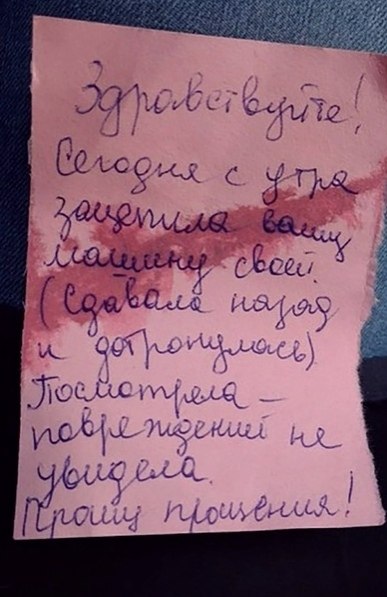 Здравствуйте!
Сегодня с утра
зацепила вашу
машину своей.
(Сдавала назад
и дотронулась)
Посмотрела –
повреждений не
увидела.
Прошу прощения!